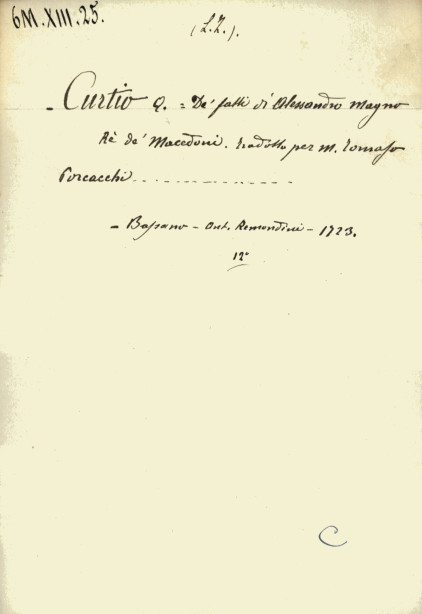 6M.XIII.25.
(L.Z.).
- Curtio Q. = De' fatti di Alessandro Magno
Rè de' Macedoni. tradotto per M. Tomaso
Porcacchi
- Bassano - Ant. Remondini - 1723.
12°
C